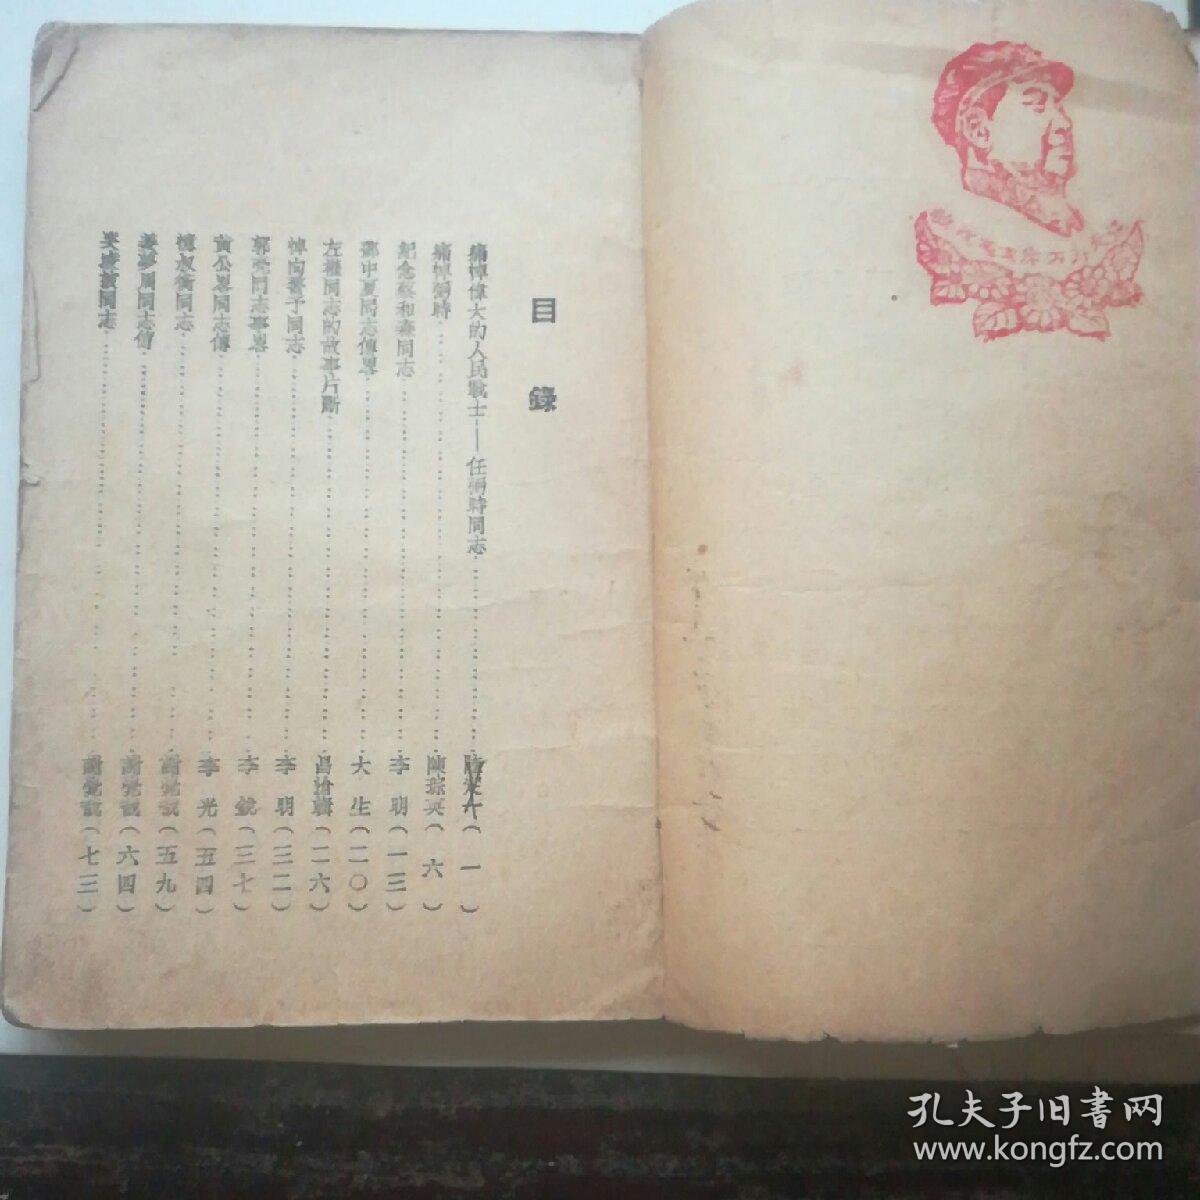 目錄
痛悼偉大的人民戰士——任弼時同志 陸定一(一)
痛悼弼時 陳琮英(六)
紀念蔡和森同志 李明(一三)
鄧中夏同志傳畧 大生(二〇)
左權同志的故事片斷 (二六)
悼向警予同志 李明(三二)
郭亮同志事畧 李銳(三七)
黃公畧同志傳 李光(五四)
憶叔衡同志 謝覺哉(五九)
姜夢周同志傳 謝覺哉(六四)
同志 謝覺哉(七三)
孔夫子旧书网
www.kongfz.com